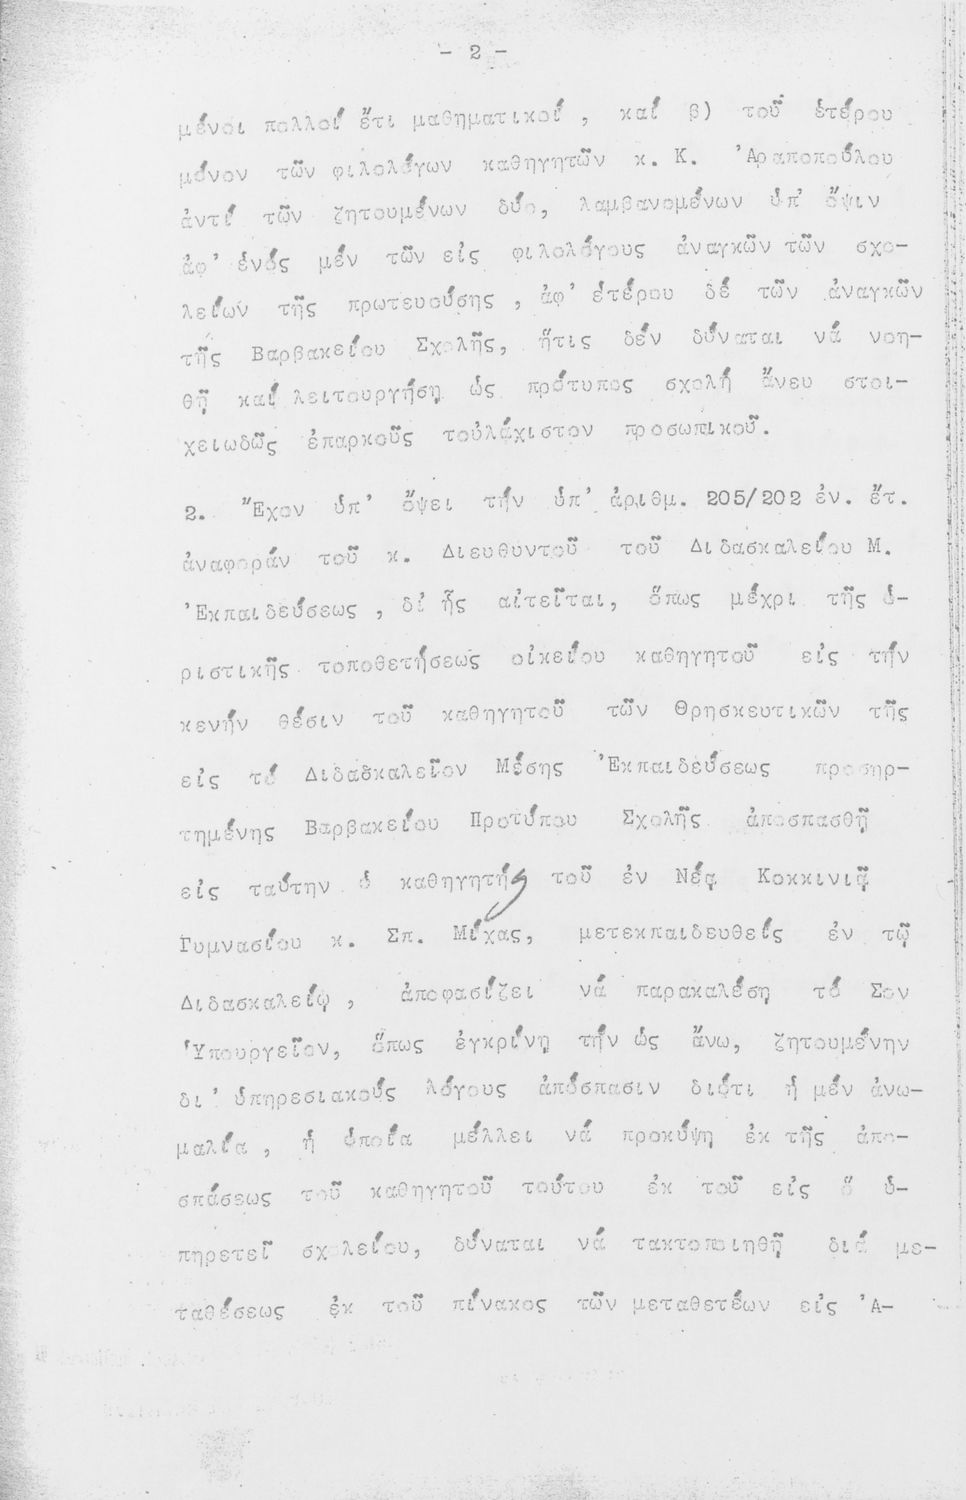 - 2 -
μένοι πολλοί ἔτι μαθηματικοί , καί β) τοῦ ἑτέρου
μόνον τῶν φιλολόγων καθηγητῶν κ. Κ. Ἀραποπούλου
ἀντί τῶν ζητουμένων δύο, λαμβανομένων ὑπ' ὄψιν
ἀφ' ἑνός μέν τῶν εἰς φιλολόγους ἀναγκῶν τῶν σχο-
λείων τῆς πρωτευούσης , ἀφ' ἑτέρου δέ τῶν ἀναγκῶν
τῆς Βαρβακείου Σχολῆς, ἥτις δέν δύναται νά νοη-
θῇ καί λειτουργήσῃ ὡς πρότυπος σχολή ἄνευ στοι-
χειωδῶς ἐπαρκοῦς τοὐλάχιστον προσωπικοῦ.
2. Ἔχον ὑπ' ὄψει τήν ὑπ' ἀριθμ. 205/202 ἐν. ἔτ.
ἀναφοράν τοῦ κ. Διευθυντοῦ τοῦ Διδασκαλείου Μ.
Ἐκπαιδεύσεως , δι' ἧς αἰτεῖται, ὅπως μέχρι τῆς ὁ-
ριστικῆς τοποθετήσεως οἰκείου καθηγητοῦ εἰς τήν
κενήν θέσιν τοῦ καθηγητοῦ τῶν Θρησκευτικῶν τῆς
εἰς τό Διδασκαλεῖον Μέσης Ἐκπαιδεύσεως προσηρ-
τημένης Βαρβακείου Προτύπου Σχολῆς ἀποσπασθῇ
εἰς ταύτην ὁ καθηγητής τοῦ ἐν Νέᾳ Κοκκινιᾷ
Γυμνασίου κ. Σπ. Μίχας, μετεκπαιδευθείς ἐν τῷ
Διδασκαλείῳ , ἀποφασίζει νά παρακαλέσῃ τό Σον
Ὑπουργεῖον, ὅπως ἐγκρίνῃ τήν ὡς ἄνω, ζητουμένην
δι' ὑπηρεσιακούς λόγους ἀπόσπασιν διότι ἡ μέν ἀνω-
μαλία , ἡ ὁποία μέλλει νά προκύψῃ ἐκ τῆς ἀπο-
σπάσεως τοῦ καθηγητοῦ τούτου ἐκ τοῦ εἰς ὅ ὑ-
πηρετεῖ σχολείου, δύναται νά τακτοποιηθῇ διά με-
ταθέσεως ἐκ τοῦ πίνακος τῶν μεταθετέων εἰς Ἀ-